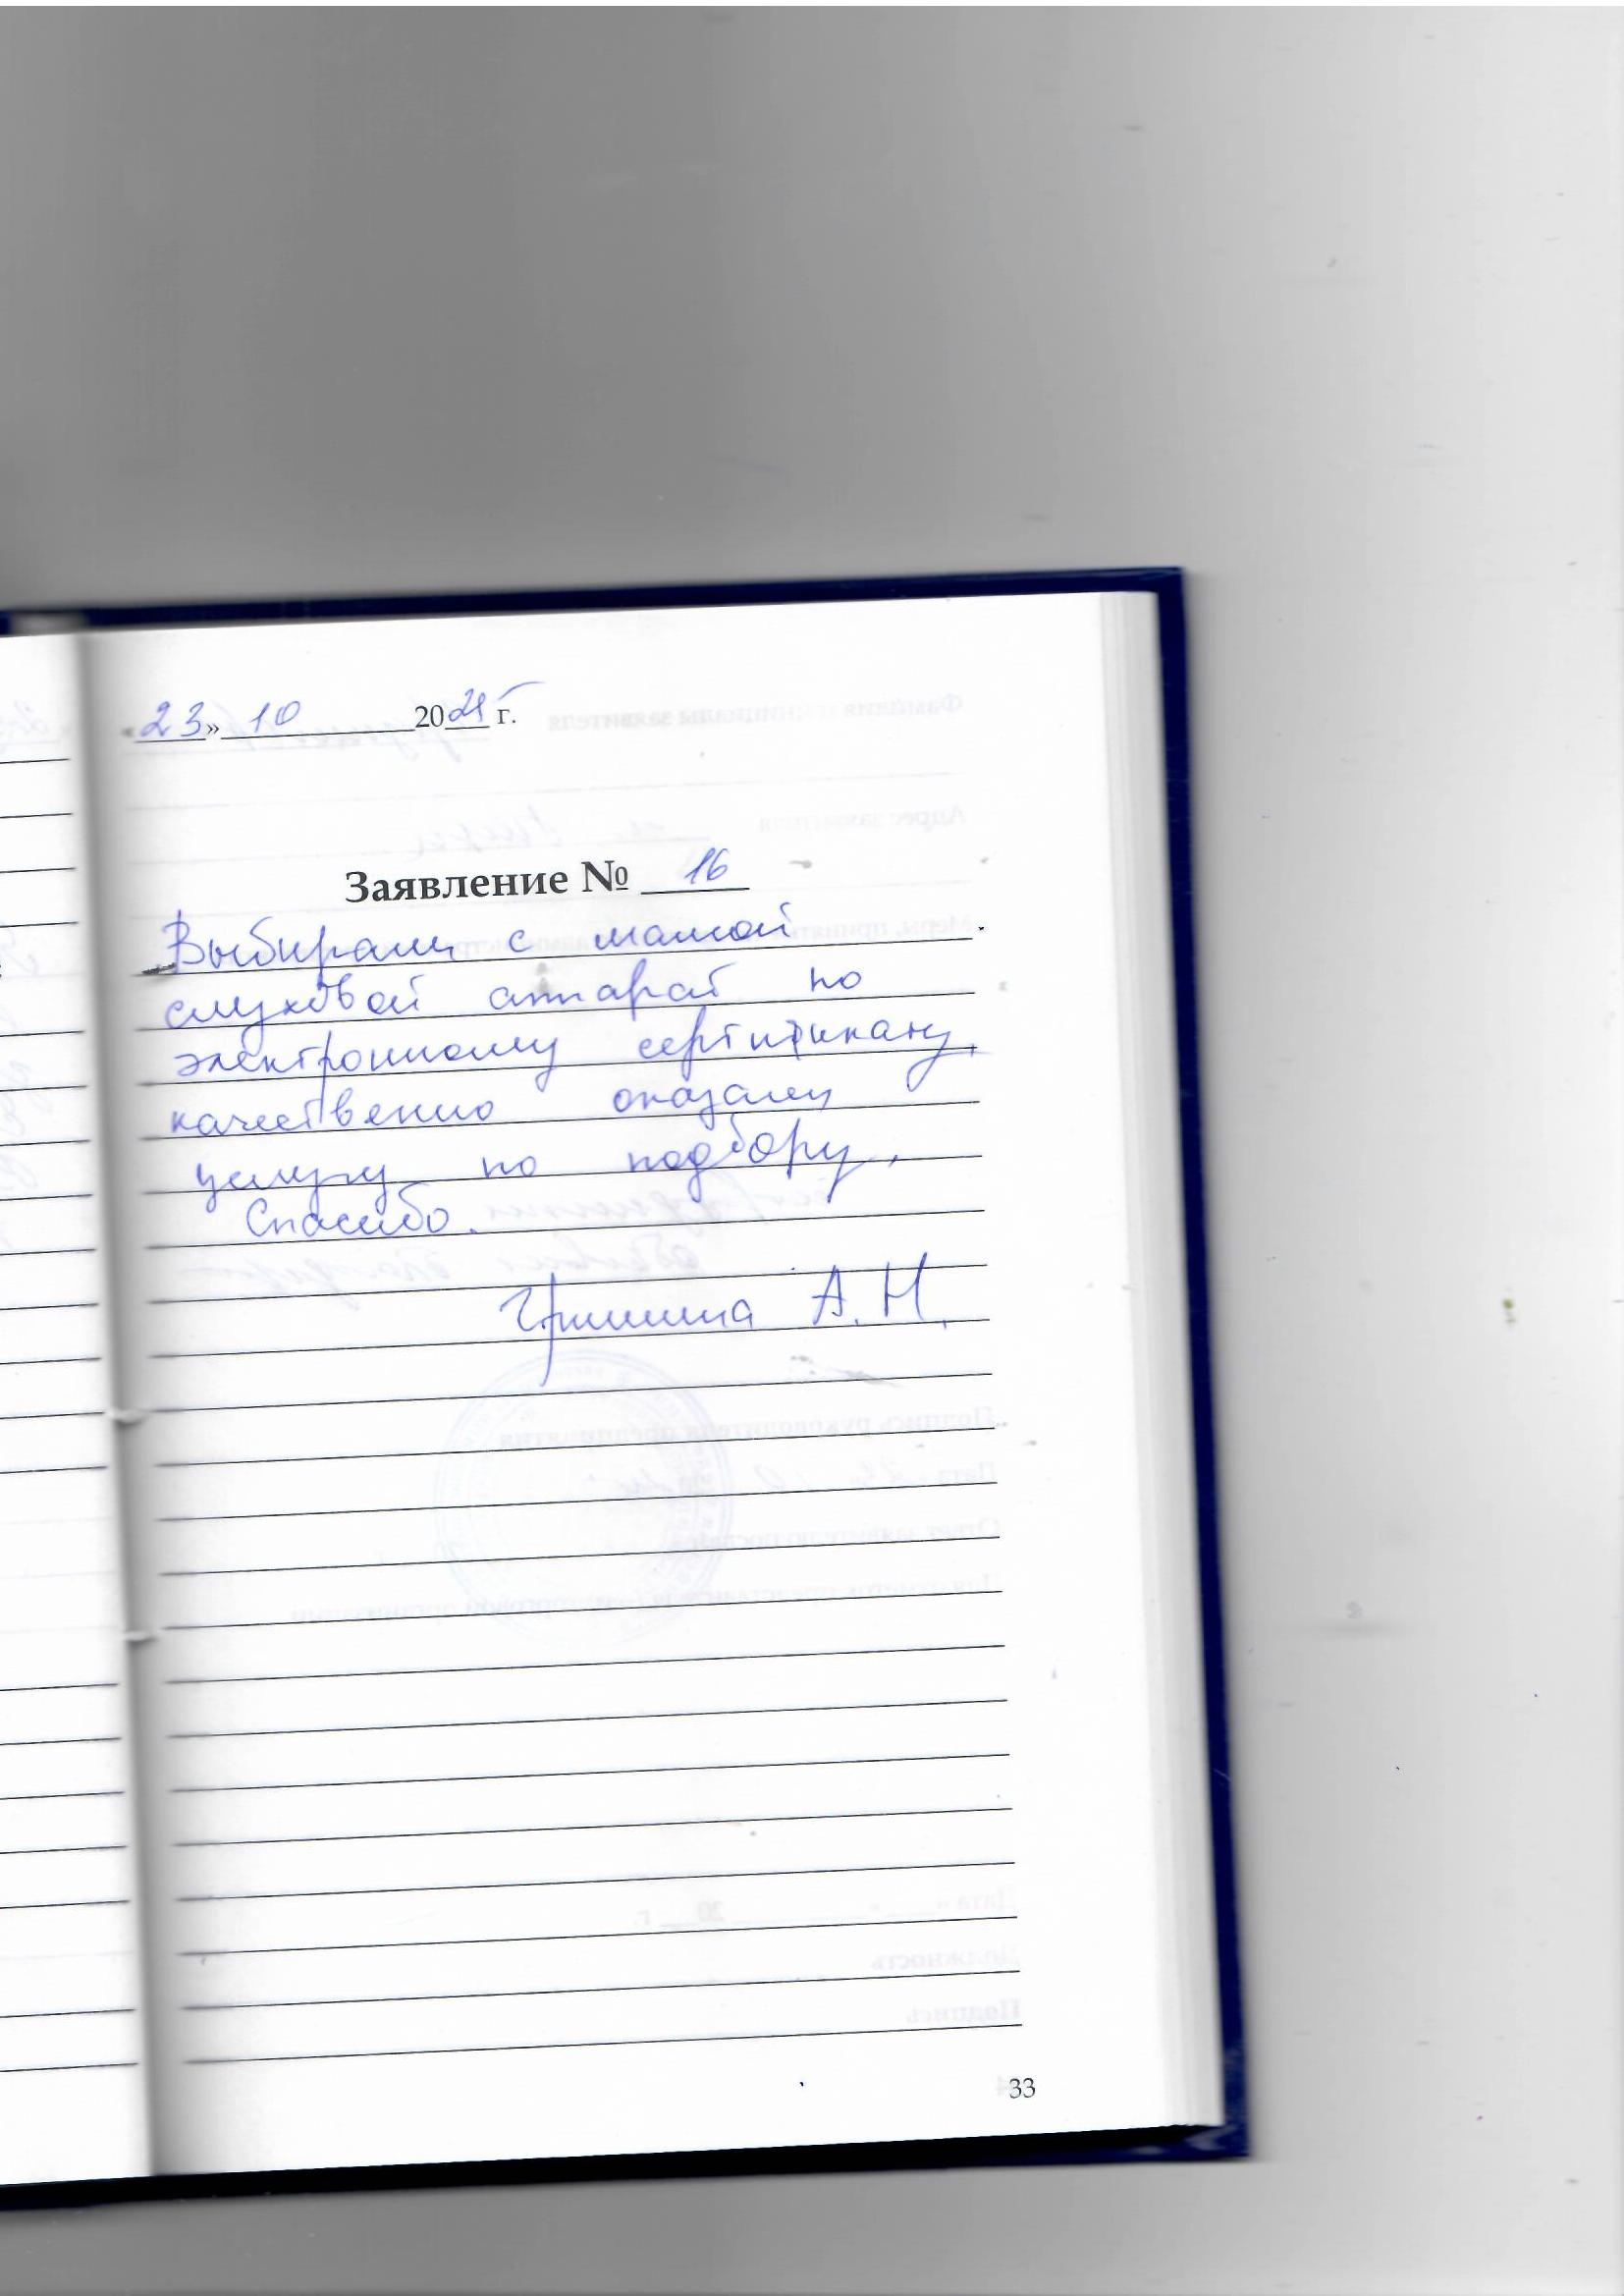 «23» 10 2025 г.
Заявление № 16
Выбирали с мамой
слуховой аппарат по
электронному сертификату,
качественно оказали
услугу по подбору.
Спасибо.
Гришина А.Н.
33